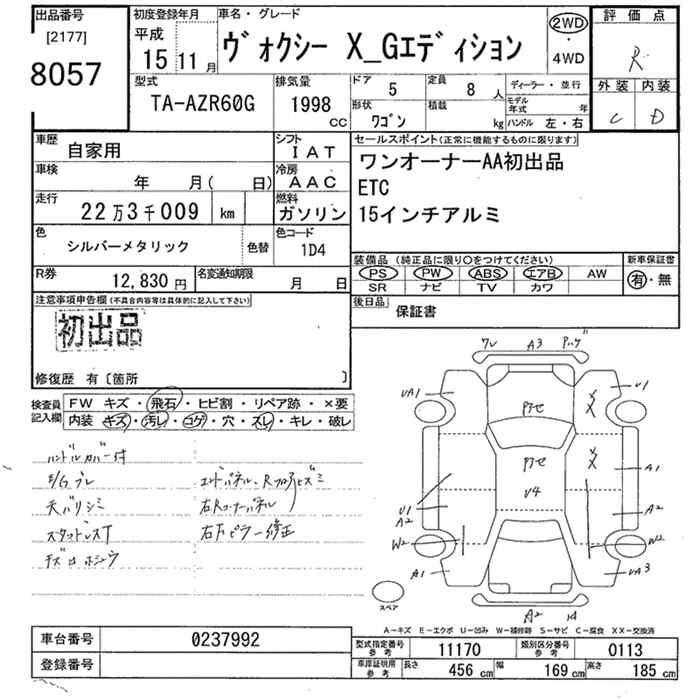 出品番号
[2177]
8057
初度登録年月
平成
15 11月
車名・グレード
ヴォクシー X_Gエディション
2WD
・
4WD
評価点
R
外装 内装
C D
型式
TA-AZR60G
排気量
1998 CC
ドア
5
定員
8 人
形状
ワゴン
積載
kg
ディーラー・並行
モデル年式 年
ハンドル 左・右
車歴
自家用
シフト
IAT
車検
年 月( 日)
冷房
AAC
走行
22万3千009 km
燃料
ガソリン
色
シルバーメタリック
色替
色コード
1D4
R券
12,830円
名変通知期限
月 日
セールスポイント(正常に機能するものに限ります)
ワンオーナーAA初出品
ETC
15インチアルミ
装備品(純正品に限り○をつけてください)
PS PW ABS エアB AW
SR ナビ TV カワ
新車保証書
有・無
後日品
保証書
注意事項申告欄(不具合内容等は具体的に記入して下さい)
初出品
修復歴 有〔箇所 〕
検査員記入欄
FW キズ・飛石・ヒビ割・リペア跡・×要
内装 キズ・汚レ・コゲ・穴・スレ・キレ・破レ
ハンドルカバー付
E/Gブレ
天バリシミ
スタッドレスT
エンドパネル、Rフロアヒズミ
右Rコーナーパネル
右Fピラー修正
ワレ A3
UA1
U1
XX
アセ
XX
アセ
U4
A1
U1
A2
A2
W2
W2
A1
UA3
A2
スペア
A-キズ E-エクボ U-凹み W-補修跡 S-サビ C-腐食 XX-交換済
車台番号
0237992
登録番号
型式指定番号
参考
11170
類別区分番号
参考
0113
車庫証明用
参考
長さ
456 cm
幅
169 cm
高さ
185 cm